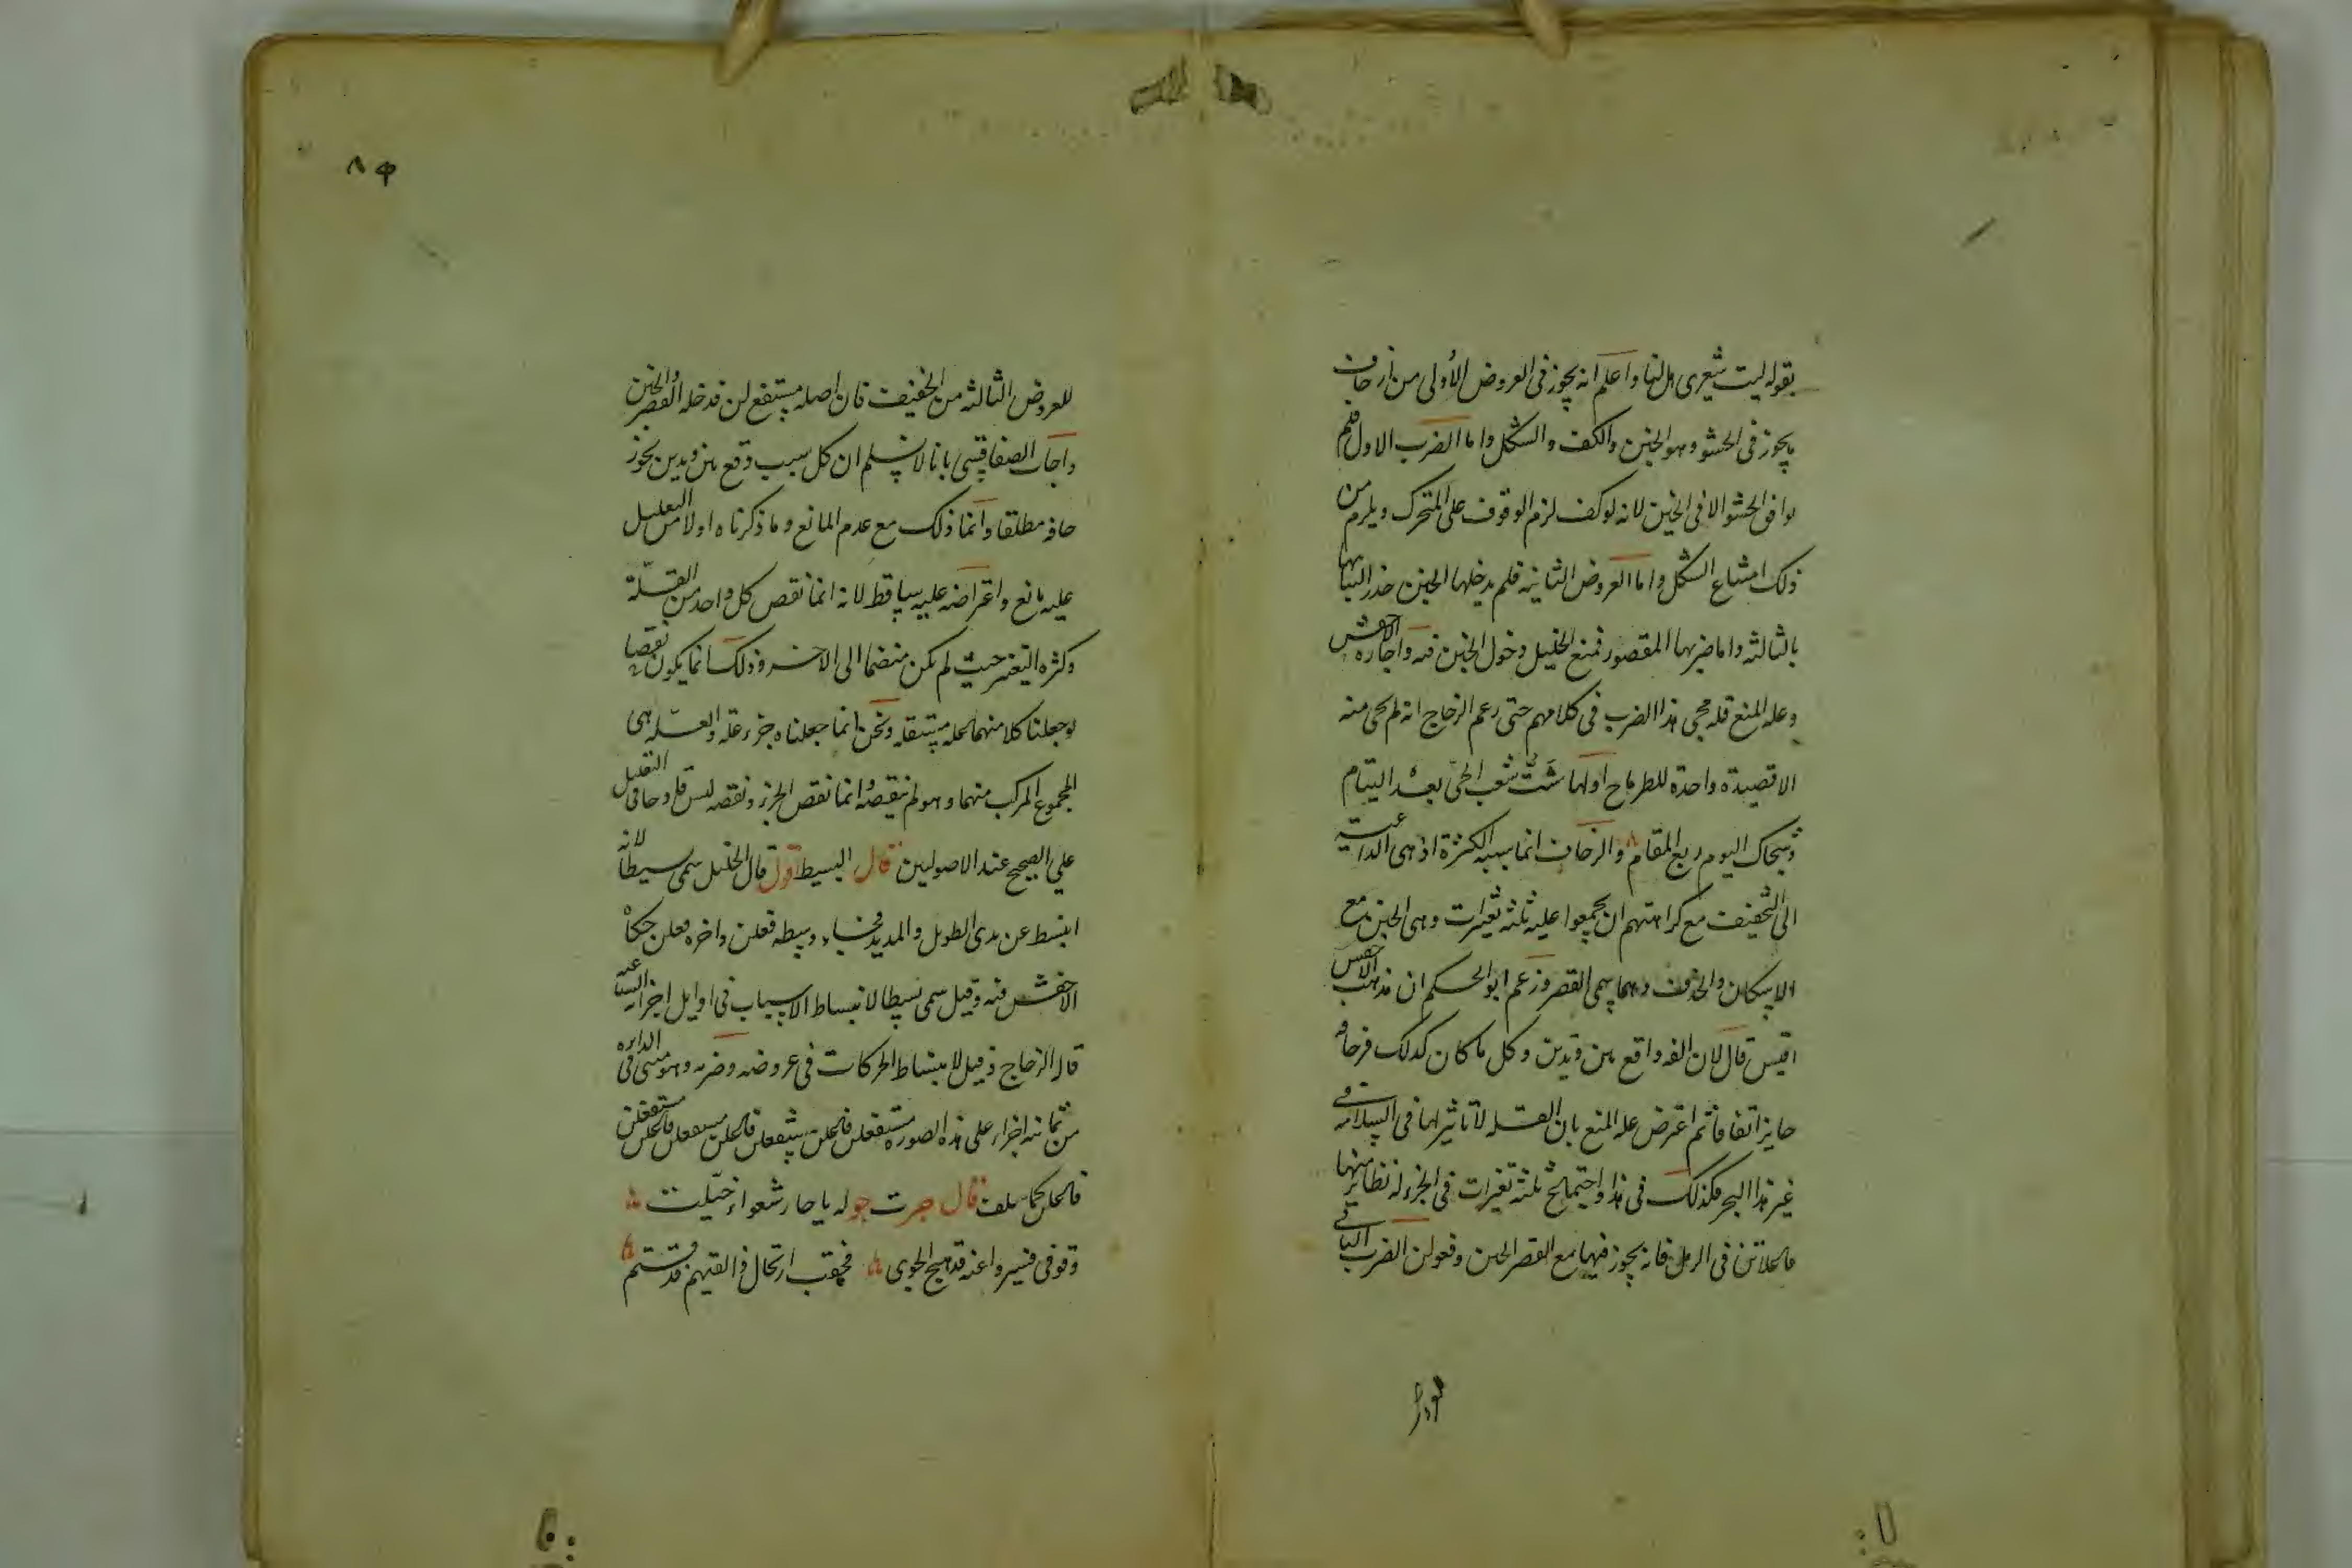 بقوله ليت شعرى هل لنا واعلم انه يجوز فى العروض الأولى من الزحاف
ما يجوز فى الحشو وهو الخبن والكف والشكل واما الضرب الاول فلم
يوافق الحشو الا فى الخبن لانه لو كف لزم الوقوف على المتحرك ويلزم من
ذلك امتناع الشكل واما العروض الثانية فلم يدخلها الخبن حذر التباسها
بالثالثه واما ضربها المقصور فمنع الخليل دخول الخبن فيه واجازه الاخفش
وعله المنع قله مجى هذا الضرب فى كلامهم حتى زعم الزجاج انه لم يجى منه
الا قصيدة واحدة للطرماح اولها شَتَّ شعب الحىّ بعد التيام
وشجاك اليوم ربع المقام والزحاف انما سببه الكثرة اذ هى الداعية
الى التخفيف مع كراهتهم ان يجمعوا عليه ثلثه تغيرات وهى الخبن مع
الاسكان والحذف وهما يسمى القصر وزعم ابو الحكم ان مذهب الاخفش
اقيس قال لان الفه واقع بين وتدين وكل ما كان كذلك فزحافه
جايز اتفاقا ثم اعترض عله المنع بان القله لا تاثير لها فى السلامه فى
غير هذا البحر فكذلك فى هذا واجتماع ثلثه تغيرات فى الجزء له نظاير منها
فاعلاتن فى الرمل فانه يجوز فيها مع القصر الخبن وفعولن الضرب الثانى
للعروض الثالثه من الخفيف فان اصله مستفع لن قد خله القصر والخبن
واجاب الصفاقسى بانا لا نسلم ان كل سبب وقع بين وتدين يجوز
حافه مطلقا وانما ذلك مع عدم المانع وما ذكرناه اولا من التعليل
عليه مانع واعتراضه عليه ساقط لانه انما نقص كل واحد من القلّة
وكثره التغير حيث لم يكن منضما الى الاخر وذلك انما يكون نقصا
لو جعلنا كلا منهما عله مستقله ونحن انما جعلناه جزء عله والعله هى
المجموع المركب منهما وهو لم ينقصه وانما نقص الجزء ونقصه ليس قادحا فى التعليل
على الصحيح عند الاصوليين قال البسيط اقول قال الخليل سمى بسيطا لانه
انبسط عن مدى الطويل والمديد فجاء وسطه فعلن واخره فعلن حكاه
الاخفش عنه وقيل سمى بسيطا لانبساط الاسباب فى اوايل اجزائه السباعيه
قال الزجاج وقيل لانبساط الحركات فى عروضه وضربه وهو مبنى فى الدايره
من ثمانيه اجزاء على هذه الصوره مستفعلن فاعلن مستفعلن فاعلن مستفعلن فاعلن مستفعلن
فاعلن كما سلف قال جرت جوله يا حار شعواء خيّلت
وقوفى فسيروا عنه قد هيج الجوى فمعقب ارتحال ذا لقيهم قد ستم